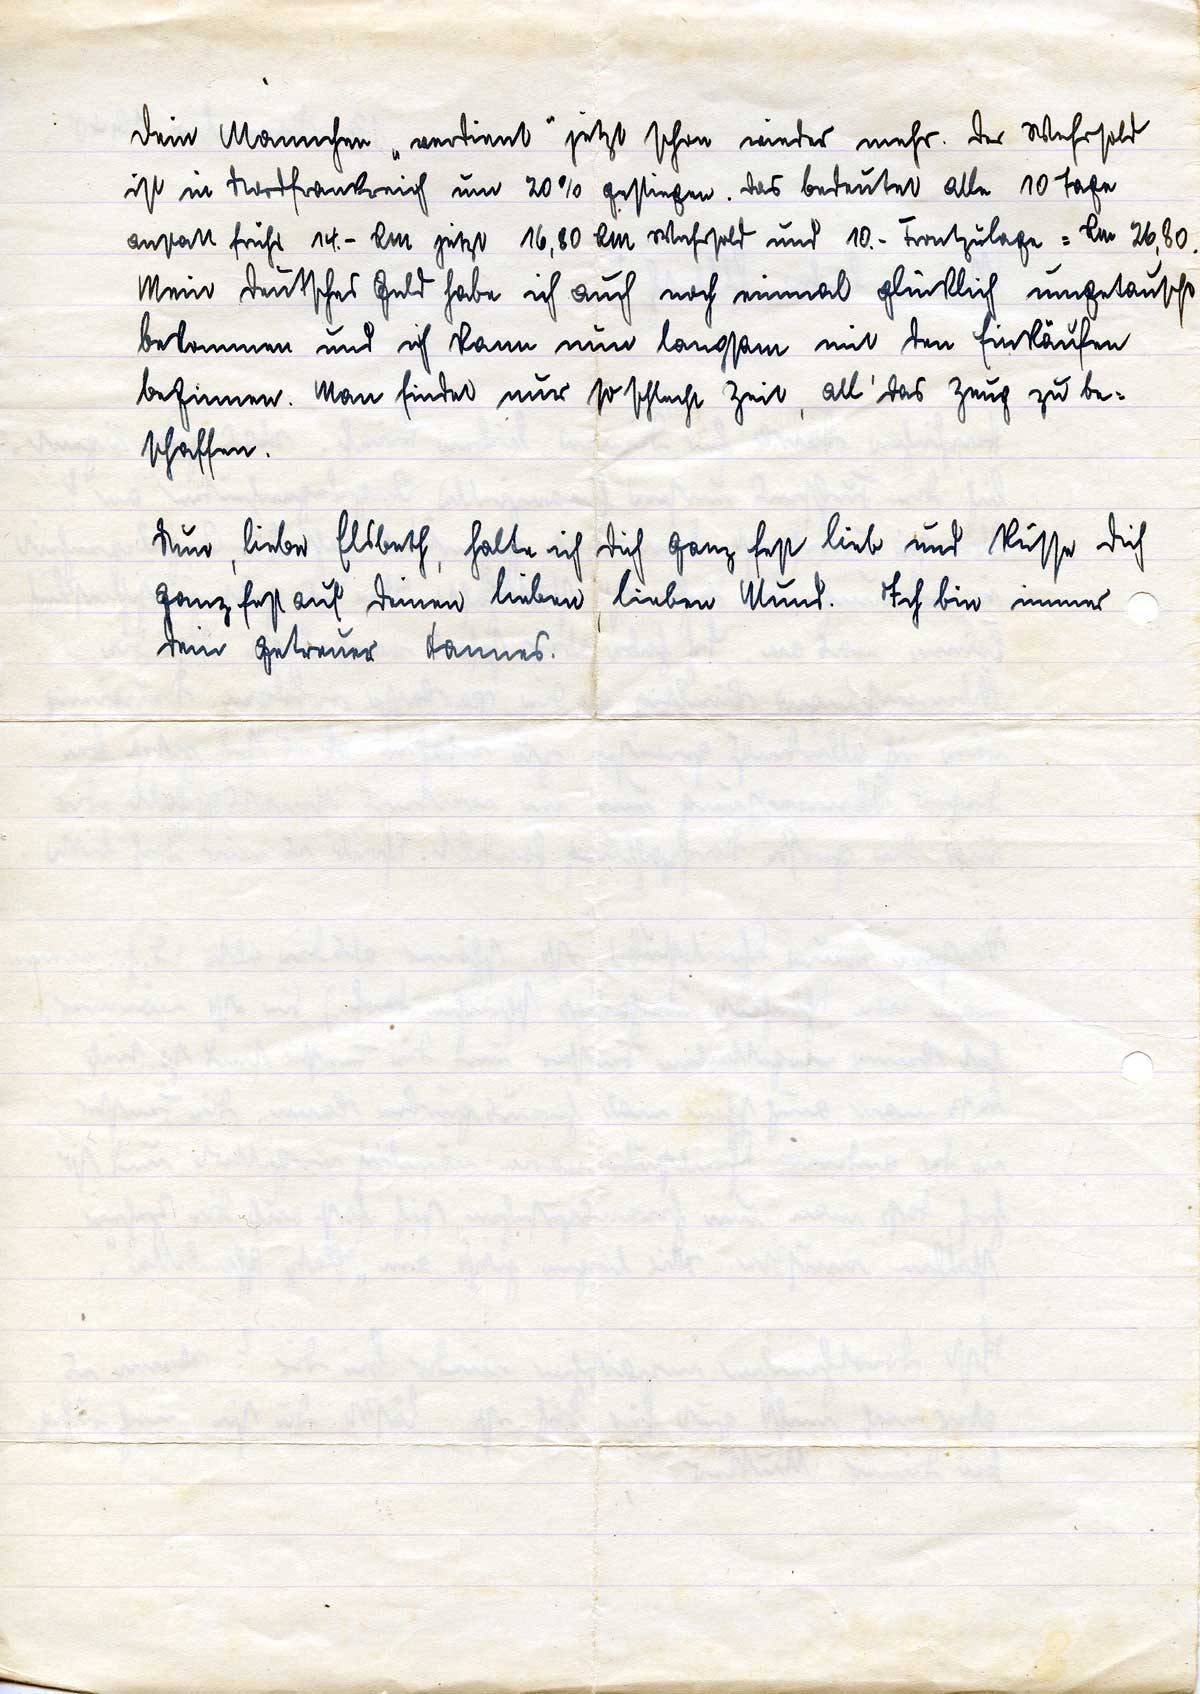 Dein Mannchen „verdient" jetzt schon wieder mehr. Der Wehrsold
ist in Nordfrankreich um 20% gestiegen. Das bedeutet alle 10 Tage
anstatt früher 14.- RM jetzt 16,80 RM Wehrsold und 10.- Frontzulage = RM 26,80.
Mein deutsches Geld habe ich auch noch einmal glücklich umgetauscht
bekommen und ich kann nun langsam mit den Einkäufen
beginnen. Man findet nur so schlecht Zeit, all' das Zeug zu be=
schaffen.
Nun, liebe Elsbeth, halte ich Dich ganz fest lieb und küsse Dich
ganz fest auf Deinen lieben lieben Mund. Ich bin immer
Dein getreuer Hannes.